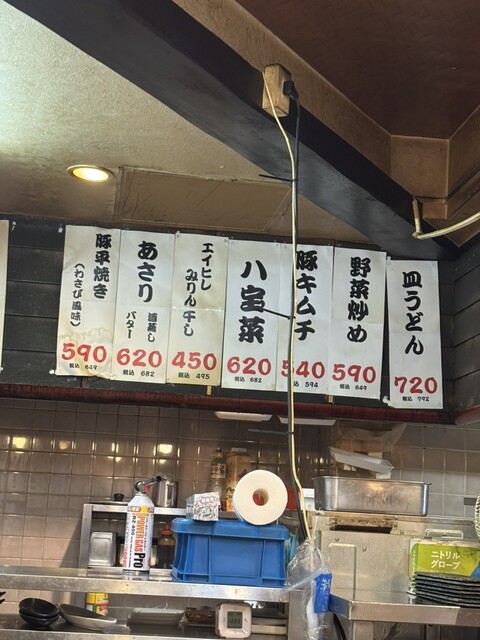 皿うどん
720
税込 792
野菜炒め
590
税込 649
豚キムチ
540
税込 594
八宝菜
620
税込 682
エイヒレ
みりん干し
450
税込 495
あさり
酒蒸し
バター
620
税込 682
豚平焼き
(わさび風味)
590
税込 649
POWER GAS Pro
ニトリル
グローブ